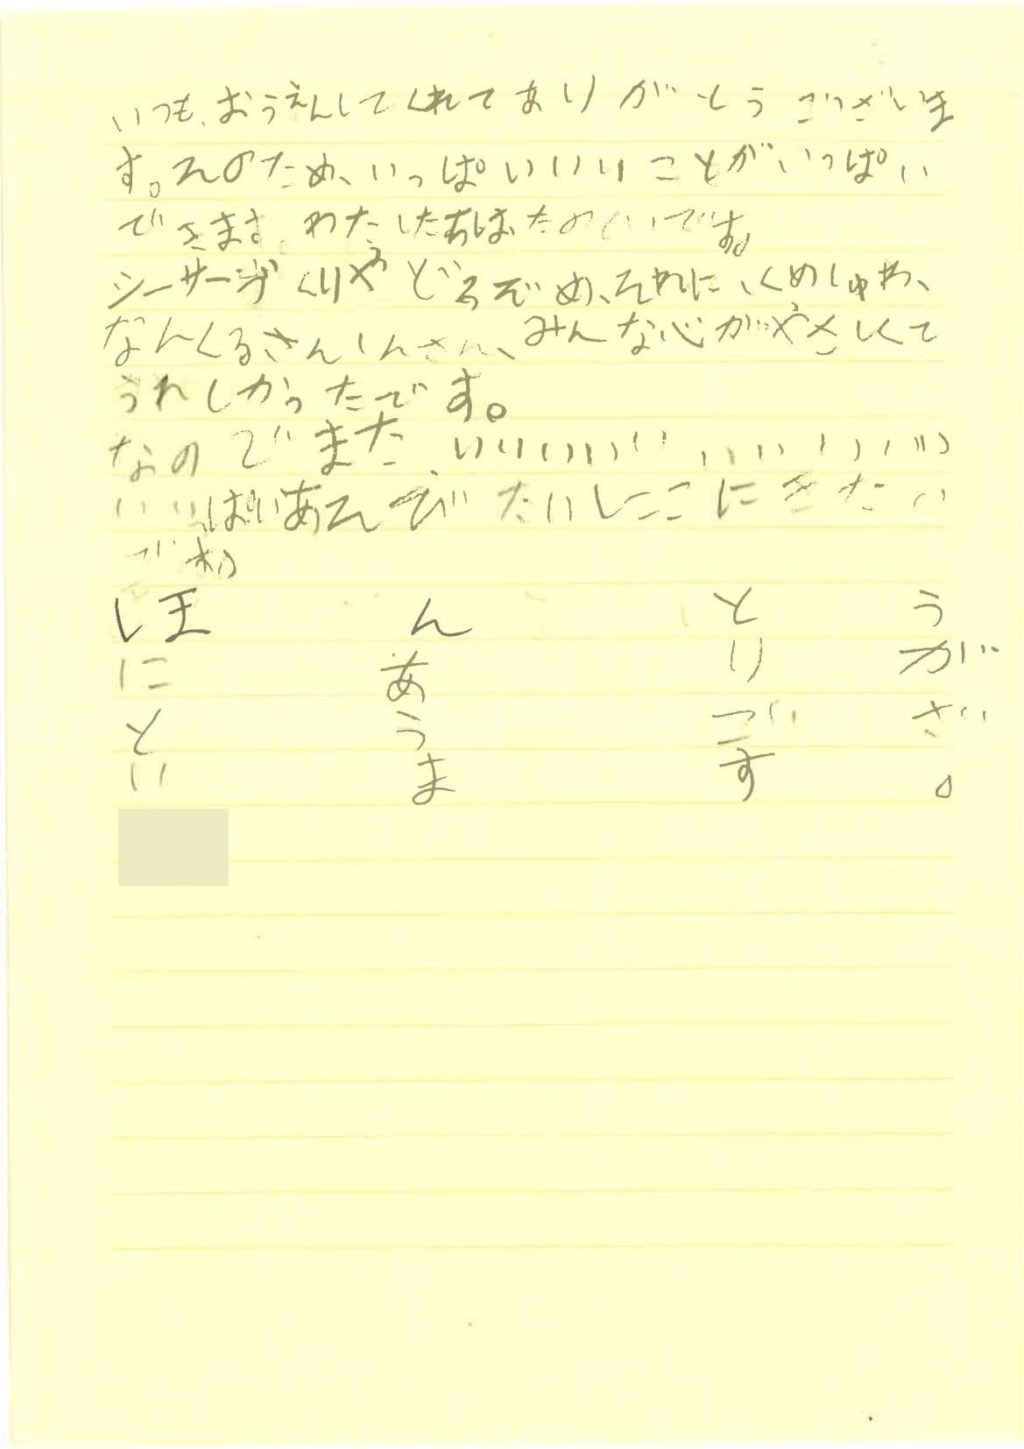 いつも、おうえんしてくれてありがとうございま
す。そのため、いっぱいいいいことがいっぱい
できます。わたしたちはたのしいです。
シーサーづくりやどろぞめ、それに、くめしゅわ、
なんくるさんしんさん、みんな心がやさしくて
うれしかったです。
なのでまた、いいいいいいいいいいいいい
いいっぱいあそびたいしここにきたい
でね
しまんとう
にありが
とうござい
います。